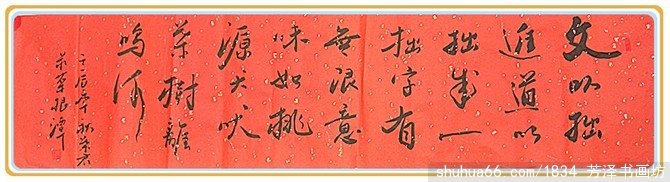 文以拙
進道以
拙成一
拙字有
無限意
味如桃
源犬吠
桑樹雞
鳴
壬辰年秋
菜根譚
shuhua66.com/1834 芳泽书画坊